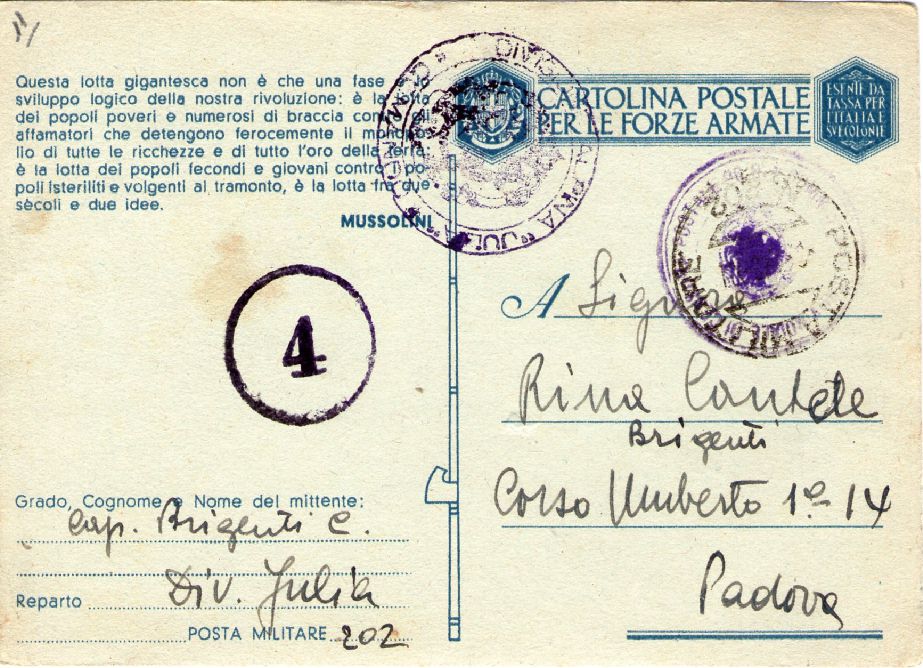 Questa lotta gigantesca non è che una fase e lo
sviluppo logico della nostra rivoluzione: è la lotta
dei popoli poveri e numerosi di braccia contro gli
affamatori che detengono ferocemente il monopo-
lio di tutte le ricchezze e di tutto l'oro della terra;
è la lotta dei popoli fecondi e giovani contro i po-
poli isteriliti e volgenti al tramonto, è la lotta fra due
sècoli e due idee.
MUSSOLINI
DIVISIONE ALPINA "JULIA"
CARTOLINA POSTALE
PER LE FORZE ARMATE
ESENTE DA
TASSA PER
L'ITALIA E
SVE COLONIE
POSTA MILITARE
4
A Signora
Rina Cantele
Brigenti
Corso Umberto 1º 14
Padova
Grado, Cognome e Nome del mittente:
Cap. Brigenti C.
Reparto Div. Julia
POSTA MILITARE 202